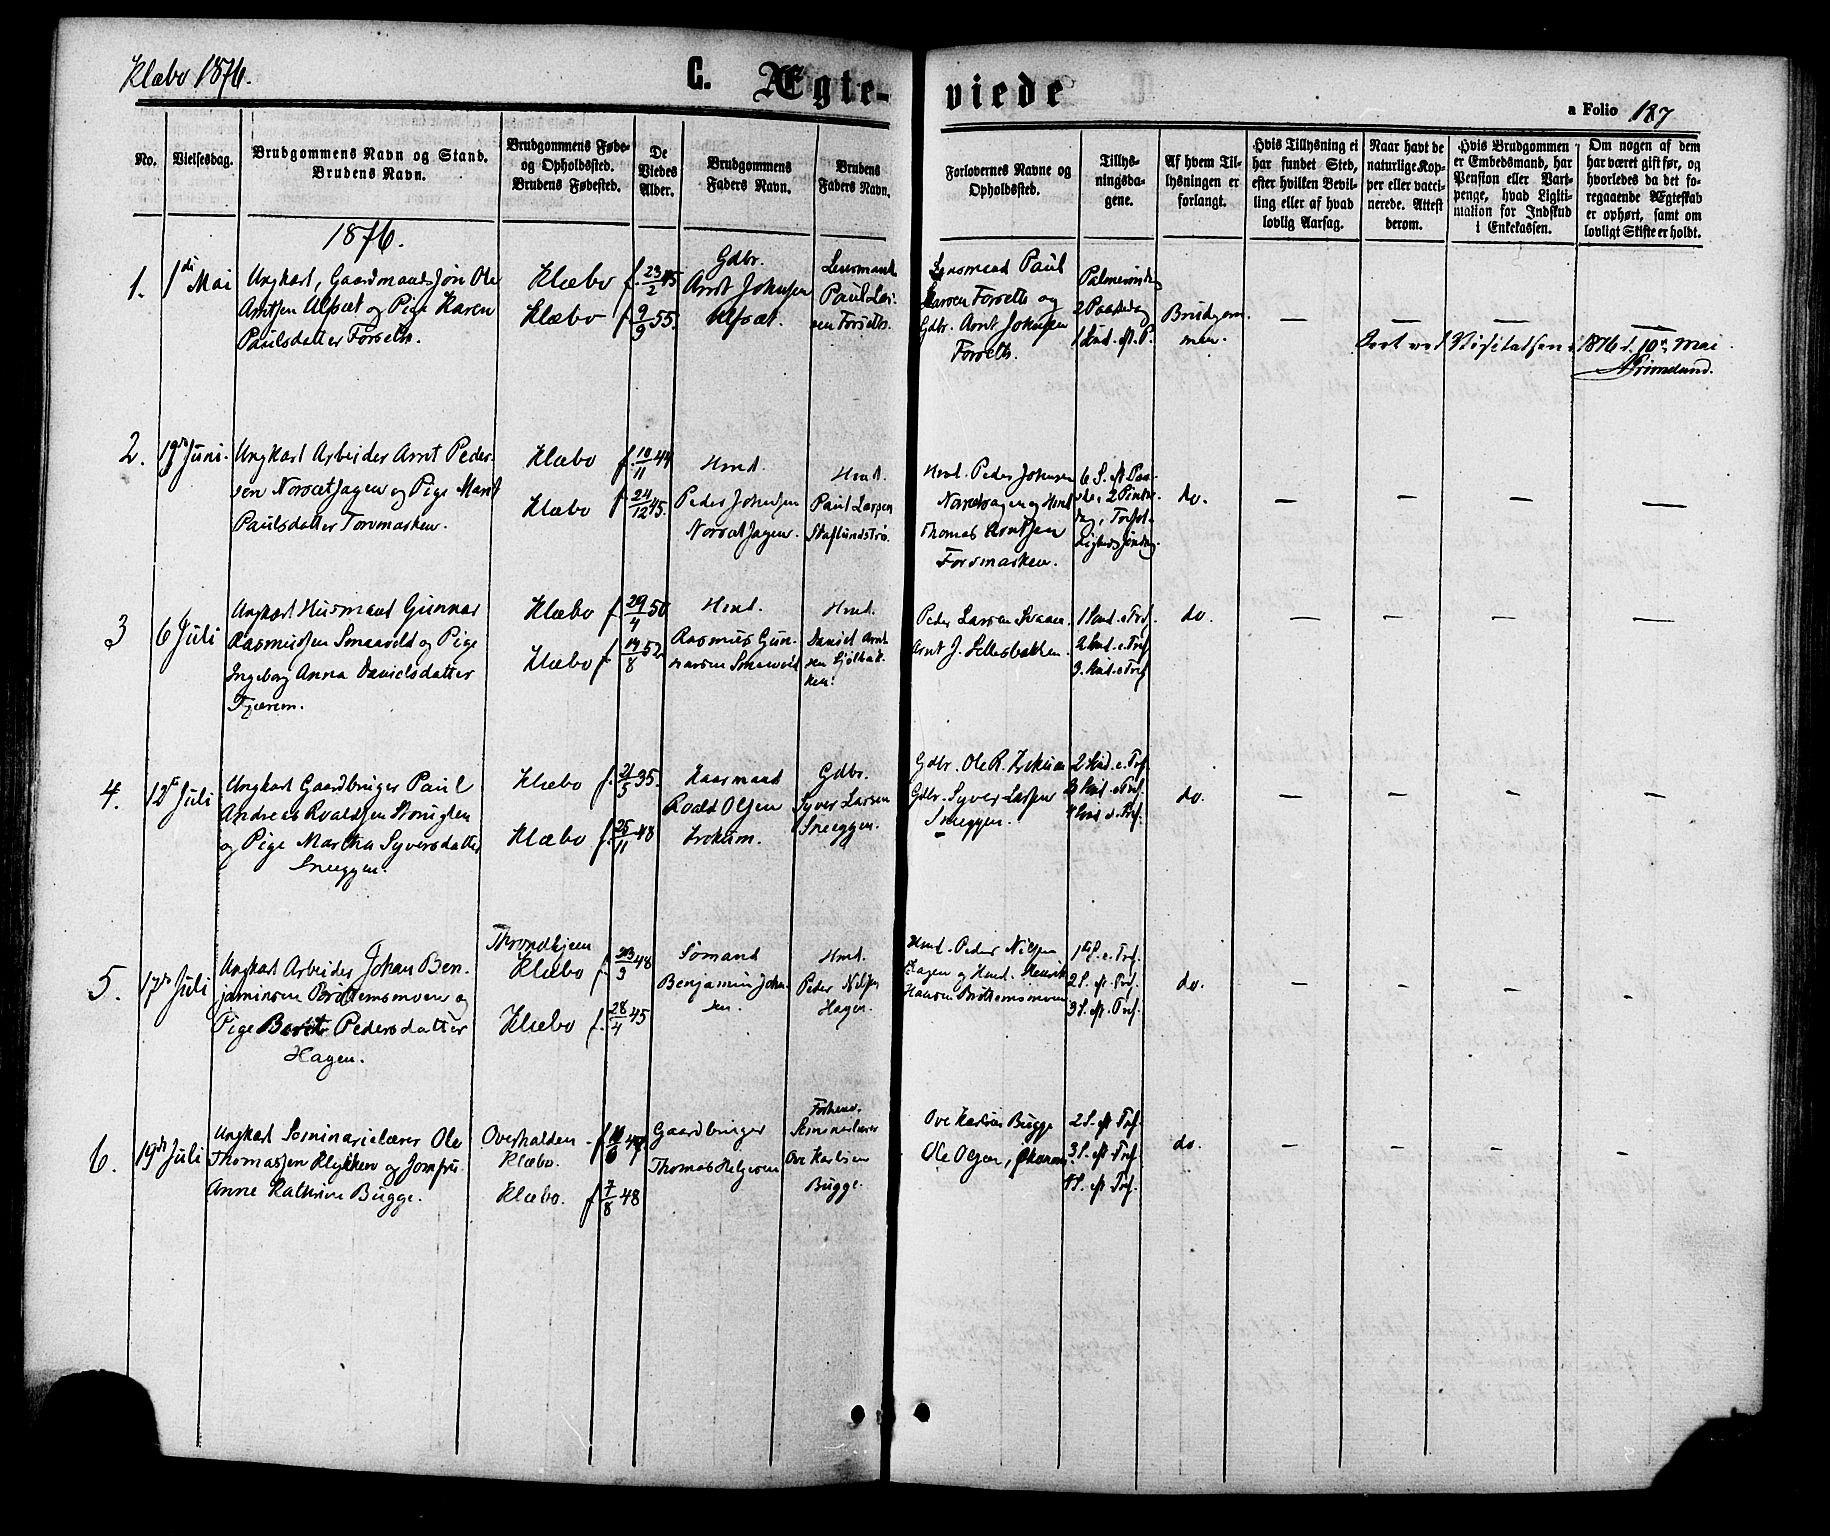 Klæbo 1876.
C. Ægte-
viede
a Folio 187
No.
Vielsesdag.
Brudgommens Navn og Stand.
Brudens Navn.
Brudgommens Føde-
og Opholdssted.
Brudens Fødested.
De
Viedes
Alder.
Brudgommens
Faders Navn.
Brudens
Faders Navn.
Forlovernes Navne og
Opholdssted.
Tillys-
ningsda-
gene.
Af hvem Til-
lysningen er
forlangt.
Hvis Tillysning ei
har fundet Sted,
efter hvilken Bevil-
ling eller af hvad
lovlig Aarsag.
Naar havt de
naturlige Kop-
per eller vacci-
nerede. Attest
derom.
Hvis Brudgommen
er Embedsmand, har
Pension eller Vart-
penge, hvad Ligiti-
mation for Indskud
i Enkekassen.
Om nogen af dem
har været gift før, og
hvorledes da det fo-
regaaende Ægteskab
er ophørt, samt om
lovligt Skifte er holdt.
1876.
1.
1ste Mai
Ungkarl, Gaardmandssøn Ole
Arntsen Ulsæt og Pige Karen
Paulsdatter Forseth.
Klæbo
Klæbo
f. 23/2 45
f. 9/9 55.
Gdbr.
Arnt Johnsen
Ulsæt.
Lensmand
Paul Lar-
sen Forseth.
Lensmand Paul
Larsen Forseth og
Gdbr. Arnt Johnsen
Forseth.
Palmesøndag
2 Paaskedag
1 Sønd. eft. P.
Brudgom-
men.
—
—
—
—
Seet ved Visitatsen 1876 d. 10de Mai
Grimelund.
2.
19de Juni.
Ungkarl Arbeider Arnt Peder-
sen Norsætsagen og Pige Marit
Paulsdatter Torvmarken.
Klæbo
Klæbo
f. 10/11 44
f. 24/12 45.
Hmd.
Peder Johnsen
Norsætsagen.
Hmd.
Paul Larsen
Hmd. Peder Johnsen
Norsetsagen og Hmd
Thomas Arntsen
Forsmarken.
6 S. eft Paa-
ske, 2 Pintse-
dag, Trefol-
digheds søndag.
do.
—
—
—
—
3
6 Juli
Ungkarl Husmand Gunnar
Rasmussen Smaavold og Pige
Ingeborg Anna Danielsdatter
Tjærem.
Klæbo
Klæbo
f. 29/4 50
f. 14/8 52
Hmd.
Rasmus Gun-
narsen Smaavold
Hmd.
Daniel Arnt
sen Gjelbak-
ken.
Peder Larsen Svaaen
Arnt J. Sellesbakken.
1 Sønd. e. Tref.
2 Sønd. e. Tref
3. Sønd. e. Tref
do.
—
—
—
—
4.
12te Juli
Ungkarl Gaardbruger Paul
Andreas Roaldsen
og Pige Martha Syversdatter
Sneeggen.
Klæbo
Klæbo
f. 21/5 35.
f. 25/11 48
Kaarmand
Roald Olsen
Gdbr.
Syver Larsen
Sneeggen.
Gdbr. Ole R.
Gdbr. Syver Larsen
Sneeggen.
2 Sønd. e. Tref.
3 Sønd. e. Tref.
4 Sønd. e. Tref.
do.
—
—
—
—
5.
17de Juli
Ungkarl Arbeider Johan Ben-
jaminsen Brøttemsmoen og
Pige Berit Pedersdatter
Hagen.
Throndhjem
Klæbo
Klæbo
f. 23/3 48
f. 28/4 45
Sømand
Benjamin Johan-
sen.
Hmd.
Peder Nilsen
Hagen.
Hmd. Peder Nilsen
Hagen og Hmd. Henrik
Hansen Brøttemsmoen
1ste S. e. Tref.
2 S. eft. Tref.
3 S. eft. Tref.
do.
—
—
—
—
6.
19de Juli
Ungkarl Seminarielærer Ole
Thomassen Klykken og Jomfru
Anne Kathrine Bugge.
Overhalden
Klæbo.
Klæbo.
f. 10/6 47
f. 7/8 48
Gaardbruger
Thomas Helgesen
Forhenv.
Seminarlærer
Ove Karlsen
Bugge.
Ove Karlsen Bugge
Ole Olsen,
2 S. eft Tref.
3 S. eft. Tref.
4 S. eft Tref.
do.
—
—
—
—